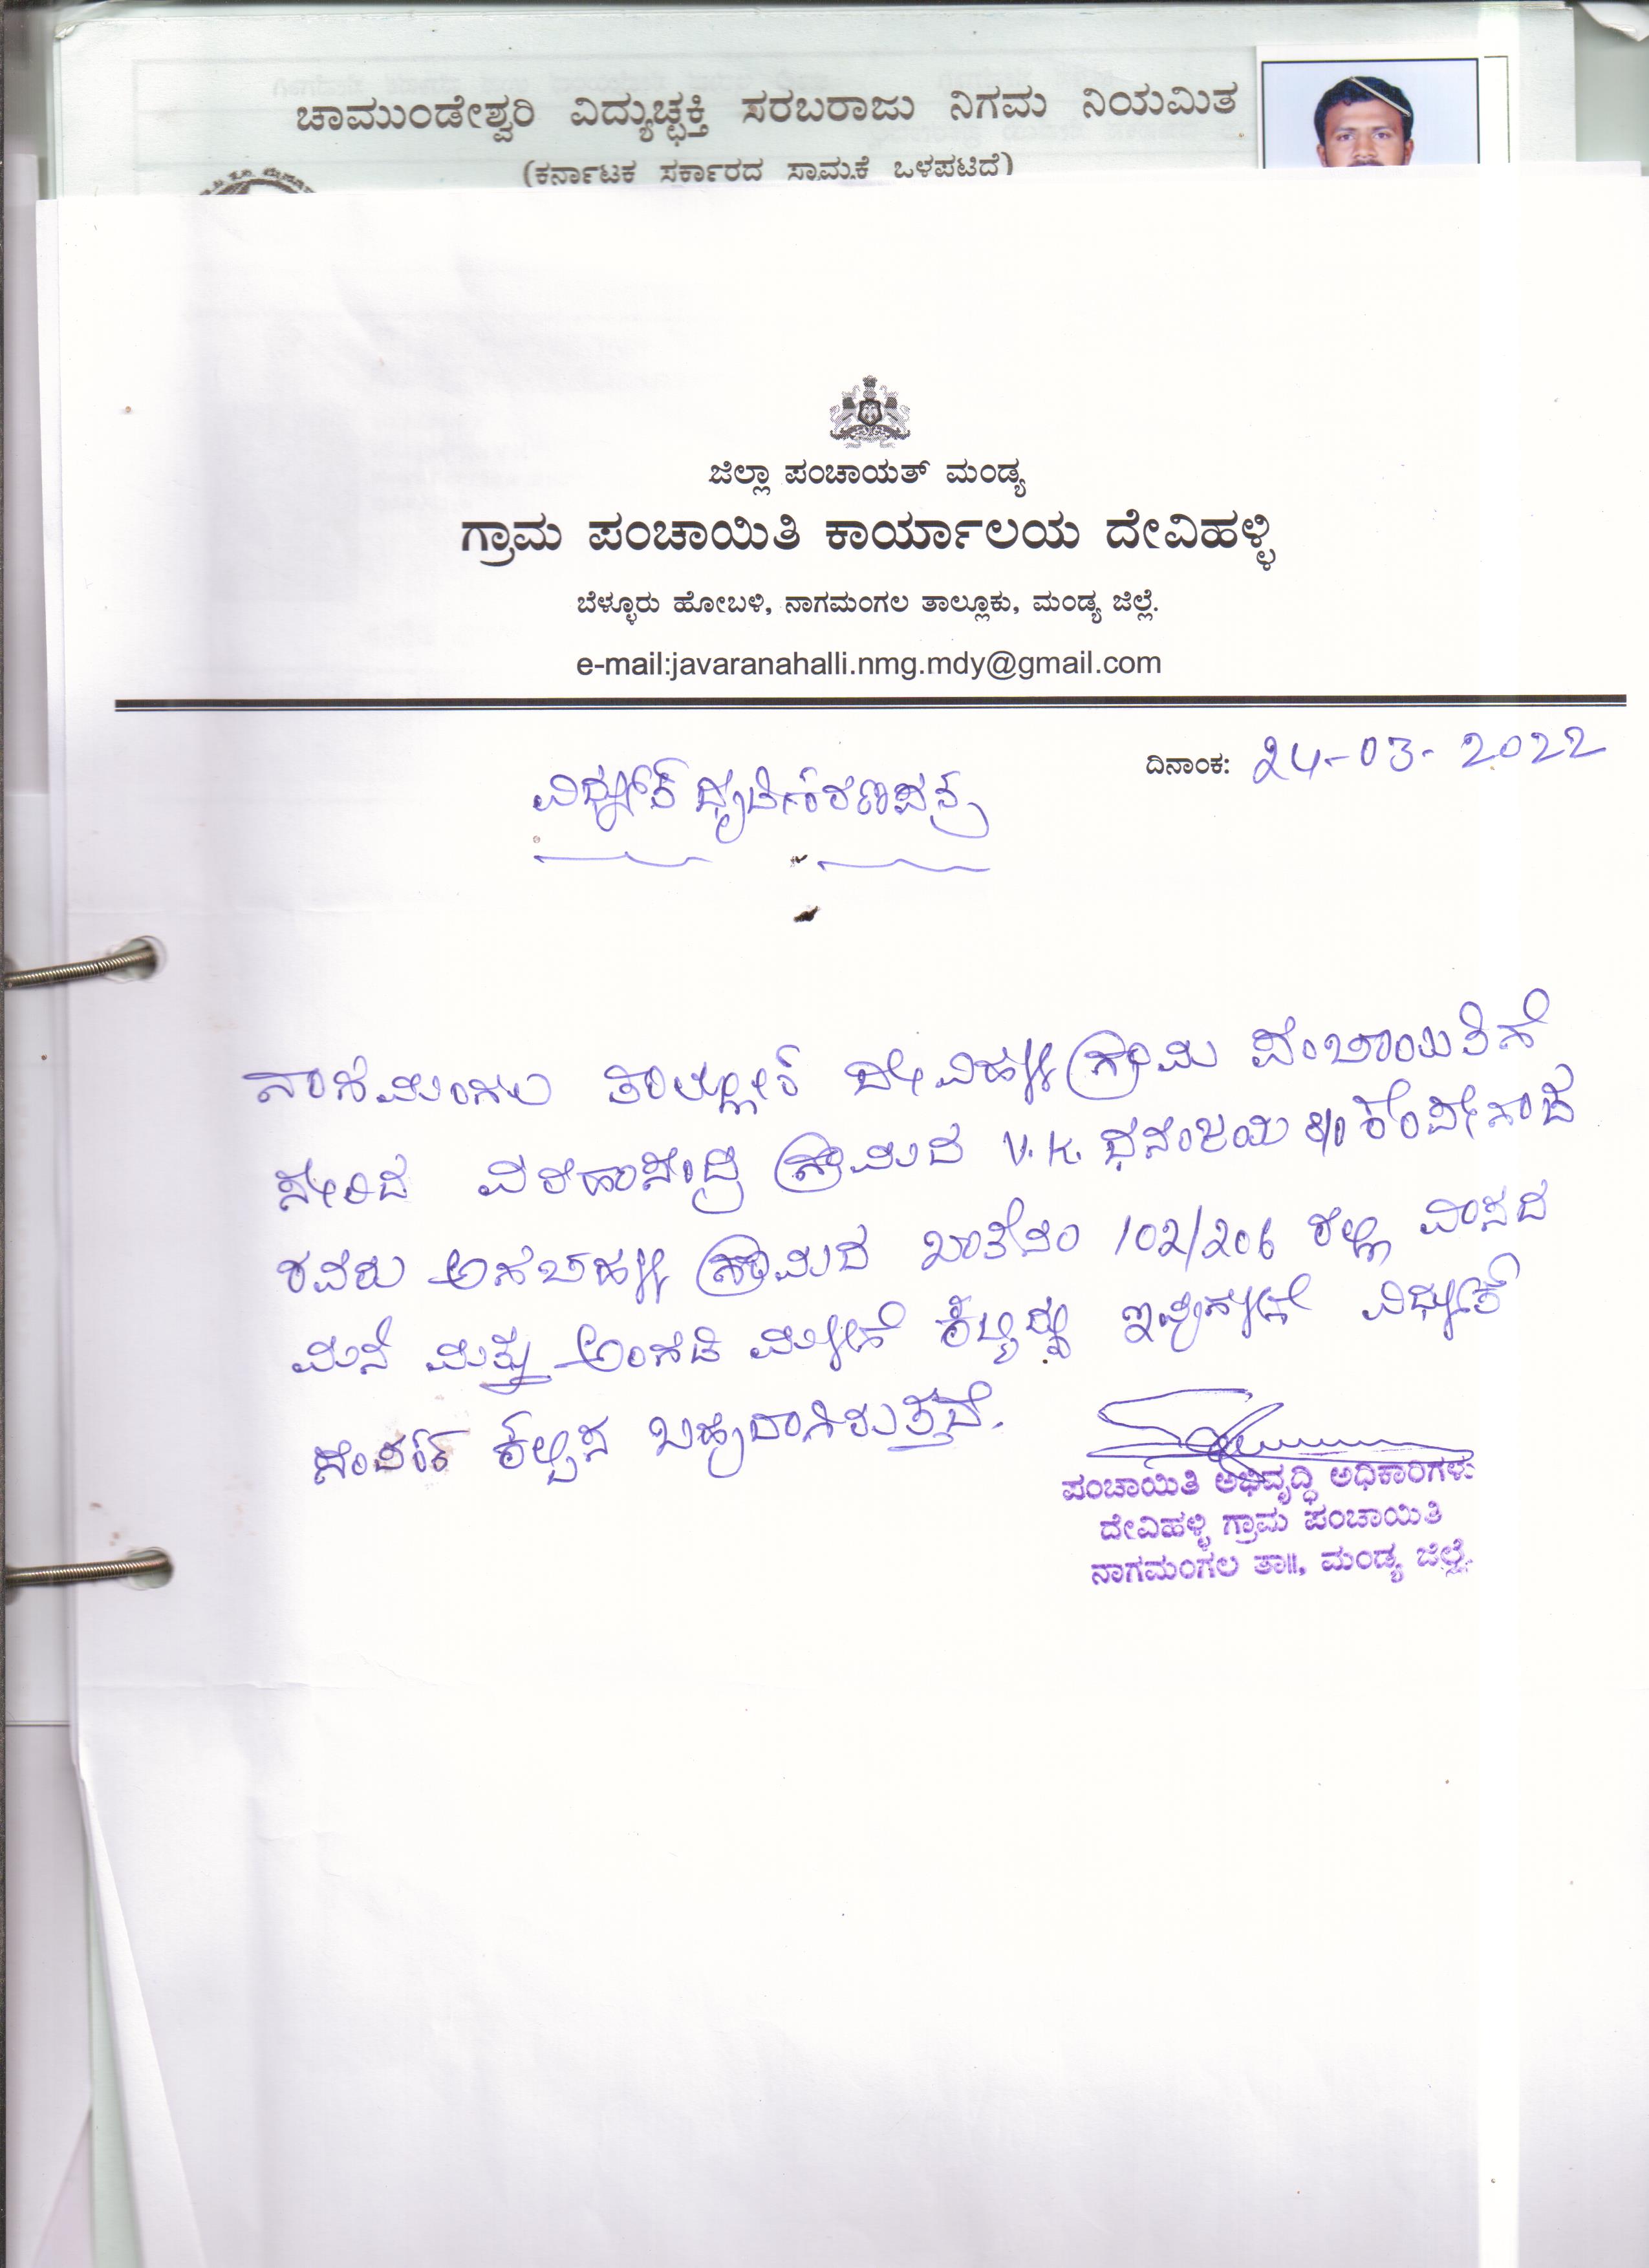 ಚಾಮುಂಡೇಶ್ವರಿ ವಿದ್ಯುಚ್ಛಕ್ತಿ ಸರಬರಾಜು ನಿಗಮ ನಿಯಮಿತ
(ಕರ್ನಾಟಕ ಸರ್ಕಾರದ ಸ್ವಾಮ್ಯಕ್ಕೆ ಒಳಪಟ್ಟಿದೆ)
ಜಿಲ್ಲಾ ಪಂಚಾಯತ್ ಮಂಡ್ಯ
ಗ್ರಾಮ ಪಂಚಾಯಿತಿ ಕಾರ್ಯಾಲಯ ದೇವಿಹಳ್ಳಿ
ಬೆಳ್ಳೂರು ಹೋಬಳಿ, ನಾಗಮಂಗಲ ತಾಲ್ಲೂಕು, ಮಂಡ್ಯ ಜಿಲ್ಲೆ.
e-mail:javaranahalli.nmg.mdy@gmail.com
ದಿನಾಂಕ: 24-03-2022
ದೃಢೀಕರಣಪತ್ರ
ನಾಗಮಂಗಲ ತಾಲ್ಲೂಕ್ ದೇವಿಹಳ್ಳಿ ಗ್ರಾಮ ಪಂಚಾಯಿತಿಗೆ
ಸೇರಿದ ಗ್ರಾಮದ V.K. ಧನಂಜಯ S/o ಕೆಂಪೇಗೌಡ
ರವರು ಗ್ರಾಮದ ಖಾತೆನಂ 102/206 ರಲ್ಲಿ ವಾಸದ
ಮನೆ ಮತ್ತು ಅಂಗಡಿ ವಿಧ್ಯುತ್
ಕಲ್ಪಿಸ ಬಹುದಾಗಿರುತ್ತದೆ.
ಪಂಚಾಯಿತಿ ಅಭಿವೃದ್ಧಿ ಅಧಿಕಾರಿಗಳು
ದೇವಿಹಳ್ಳಿ ಗ್ರಾಮ ಪಂಚಾಯಿತಿ
ನಾಗಮಂಗಲ ತಾ||, ಮಂಡ್ಯ ಜಿಲ್ಲೆ.